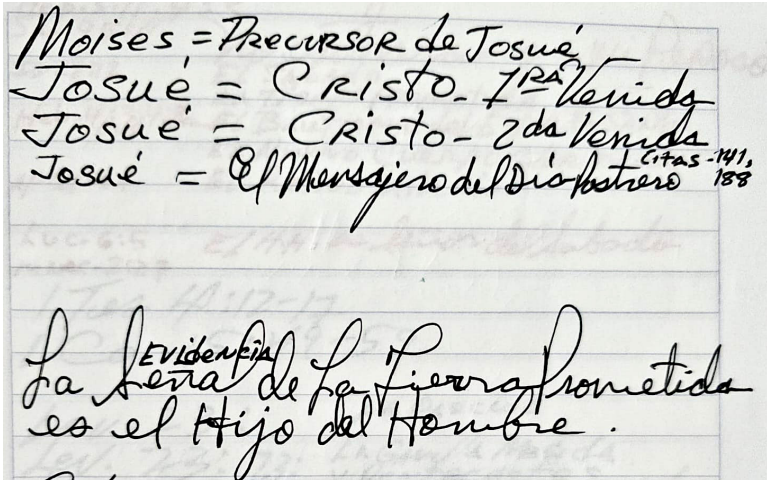 Moises = Precursor de Josué
Josué = Cristo - 1RA Venida
Josué = Cristo - 2da Venida
Josué = El Mensajero del Día Postrero Citas - 141, 188
Evidencia
La Seña de La Tierra Prometida
es el Hijo del Hombre.